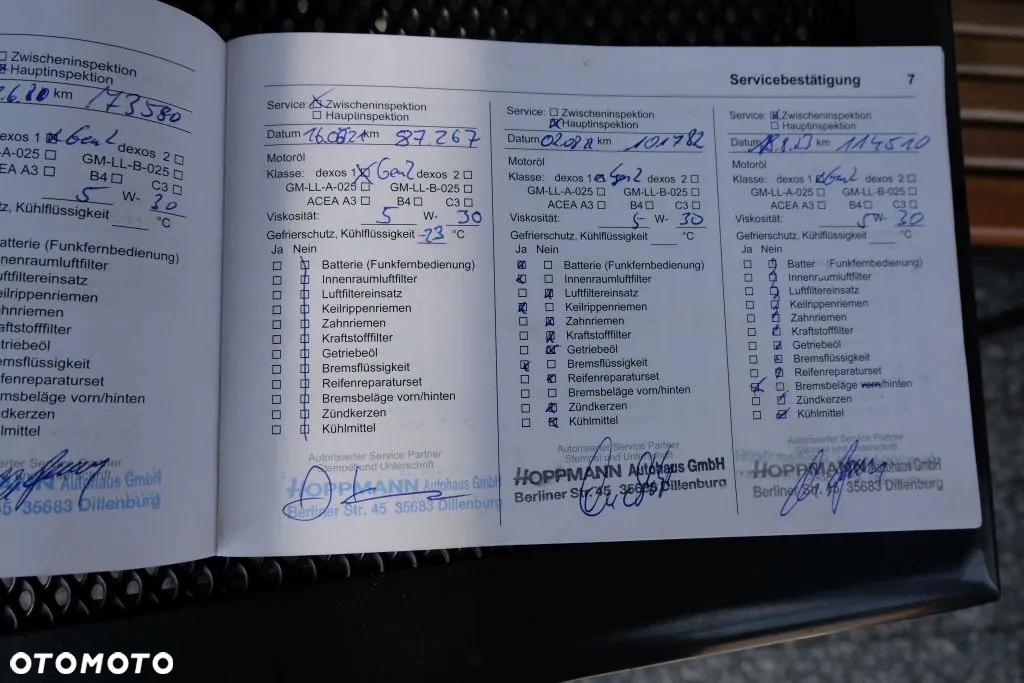 Zwischeninspektion
Hauptinspektion
km 173580
dexos 1 Gen2 dexos 2
-LL-A-025 GM-LL-B-025
ACEA A3 B4 C3
5 W- 30
tz, Kühlflüssigkeit °C
atterie (Funkfernbedienung)
nnenraumluftfilter
uftfiltereinsatz
eilrippenriemen
ahnriemen
aftstofffilter
etriebeöl
emsflüssigkeit
ifenreparaturset
msbeläge vorn/hinten
dkerzen
lmittel
erter Service Partner
Autohaus GmbH
45 35683 Dillenburg
Servicebestätigung 7
Service: Zwischeninspektion
Hauptinspektion
Datum km 87.267
Motoröl
Klasse: dexos 1 Gen2 dexos 2
GM-LL-A-025 GM-LL-B-025
ACEA A3 B4 C3
Viskosität: 5 W- 30
Gefrierschutz, Kühlflüssigkeit -23 °C
Ja Nein
Batterie (Funkfernbedienung)
Innenraumluftfilter
Luftfiltereinsatz
Keilrippenriemen
Zahnriemen
Kraftstofffilter
Getriebeöl
Bremsflüssigkeit
Reifenreparaturset
Bremsbeläge vorn/hinten
Zündkerzen
Kühlmittel
Autorisierter Service Partner
Stempel und Unterschrift
HOPPMANN Autohaus GmbH
Berliner Str. 45 35683 Dillenburg
Service: Zwischeninspektion
Hauptinspektion
Datum km 101782
Motoröl
Klasse: dexos 1 Gen2 dexos 2
GM-LL-A-025 GM-LL-B-025
ACEA A3 B4 C3
Viskosität: 5 W- 30
Gefrierschutz, Kühlflüssigkeit °C
Ja Nein
Batterie (Funkfernbedienung)
Innenraumluftfilter
Luftfiltereinsatz
Keilrippenriemen
Zahnriemen
Kraftstofffilter
Getriebeöl
Bremsflüssigkeit
Reifenreparaturset
Bremsbeläge vorn/hinten
Zündkerzen
Kühlmittel
Autorisierter Service Partner
Stempel und Unterschrift
HOPPMANN Autohaus GmbH
Berliner Str. 45 35683 Dillenburg
Service: Zwischeninspektion
Hauptinspektion
Datum km 114510
Motoröl
Klasse: dexos 1 Gen2 dexos 2
GM-LL-A-025 GM-LL-B-025
ACEA A3 B4 C3
Viskosität: 5 W- 30
Gefrierschutz, Kühlflüssigkeit °C
Ja Nein
Batter (Funkfernbedienung)
Innenraumluftfilter
Luftfiltereinsatz
Keilrippenriemen
Zahnriemen
Kraftstofffilter
Getriebeöl
Bremsflüssigkeit
Reifenreparaturset
Bremsbeläge vorn/hinten
Zündkerzen
Kühlmittel
Autorisierter Service Partner
Stempel und Unterschrift
HOPPMANN Autohaus GmbH
Berliner Str. 45 35683 Dillenburg
OTOMOTO